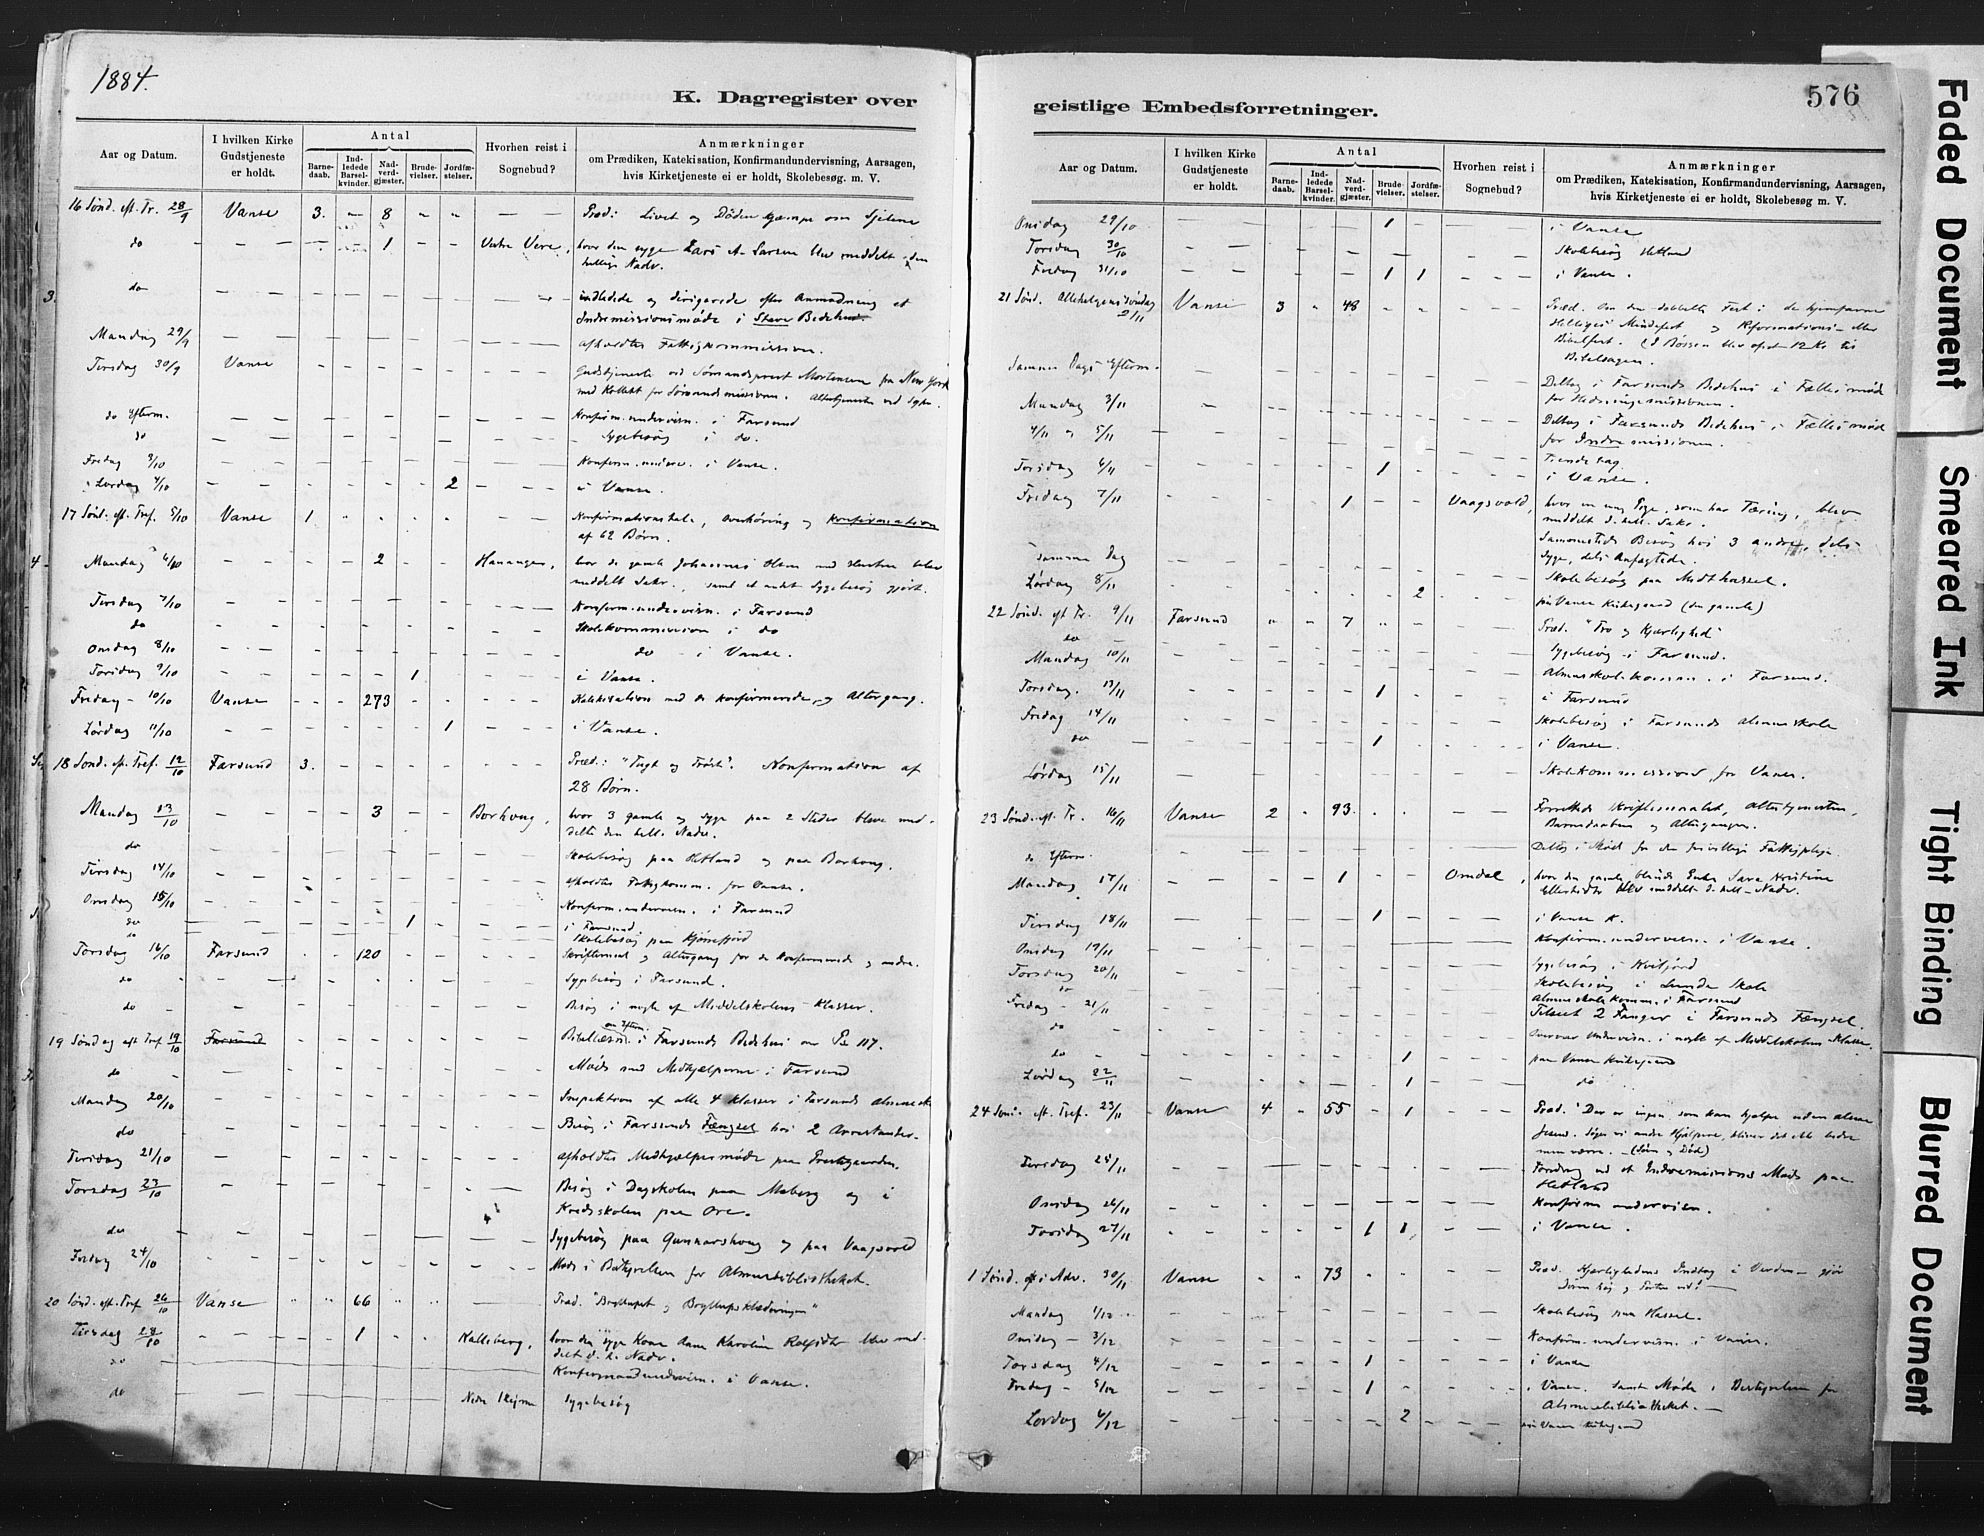 1884.
K. Dagregister over
Aar og Datum.
I hvilken Kirke
Gudstjeneste
er holdt.
Antal
Barne-
daab.
Ind-
ledede
Barsel-
kvinder.
Nad-
verd-
gjæster.
Brude-
vielser.
Jordfæ-
stelser.
Hvorhen reist i
Sognebud?
Anmærkninger
om Prædiken, Katekisation, Konfirmandundervisning, Aarsagen,
hvis Kirketjeneste ei er holdt, Skolebesøg. m. V.
16 Sønd. eft. Tr. 28/9 Vanse 3. - 8 Præd: Livet og Døden kjæmpe om Sjelene
do 1 Vestre Vere, hvor den syge Lars A. Larsen blev meddelt den
hellige Nadv.
do indledede og dirigerede efter Anmodning et
Indremissionsmøde i Stave Bedehus.
Mandag 29/9 afholdtes Fattigkommission.
Tirsdag 30/9 Vanse Gudstjeneste ved Sømandsprest Mortensen fra New York
med Kollekt for Sømandsmissionen.
do Efterm. Konfirm.underv. i Farsund
do Sygebesøg i do.
Fredag 3/10 Konfirm.underv. i Vanse.
Lørdag 4/10 2 i Vanse.
17 Sønd. eft. Tref. 5/10 Vanse 1 Konfirmationstale, Overhøring og Konfirmation
af 62 Børn.
Mandag 6/10 2 Hanangen, hvor de gamle Johannes Olsen med Hustru blev
meddelt Sakr., samt et andet Sygebesøg gjort.
Tirsdag 7/10 Konfirm.undervisn. i Farsund
do Skolekommission i do
Onsdag 8/10 do - i Vanse.
Torsdag 9/10 1 i Vanse.
Fredag 10/10 Vanse 273 Katekisation med de Konfirmerede, og Altergang.
Lørdag 11/10 1 i Vanse.
18 Sønd. eft. Tref. 12/10 Farsund 3. Præd.: "Tugt og Trøst". Konfirmation af
28 Børn.
Mandag 13/10 3 Borhoug, hvor 3 gamle og syge paa 2 Steder bleve med-
delte den hell. Nadv.
do Skolebesøg paa Hetland og paa Borhoug.
Tirsdag 14/10 afholdtes Fattigkomm. for Vanse.
Onsdag 15/10 Konfirm.underv. i Farsund
do 1 i Farsund.
do Skolebesøg paa Kjørrefjord
Torsdag 16/10 Farsund 120 Skriftemaal og Altergang for de Konfirmerede og andre.
do Sygebesøg i Farsund.
do Besøg i nogle af Middelskolens Klasser.
19 Søndag eft Tref 19/10 Farsund Bibellæsn. om Efterm. i Farsunds Bedehus over Ps 117.
do Møde med Medhjælperne i Farsund
Mandag 20/10 Inspektion af alle 4 Klasser i Farsunds Almuesk
do Besøg i Farsunds Fængsel hos 2 Arrestanter.
Tirsdag 21/10 afholdtes Medhjælpermøde paa Prestegaarden.
Torsdag 23/10 Besøg i Dagskolen paa Maberg og i
Kredsskolen paa Ore.
do Sygebesøg paa Gunnarshoug og paa Vaagsvold
Fredag 24/10 Møde i Bestyrelsen for Almuebibliotheket.
20 Sønd. eft. Tref 26/10 Vanse 66 Præd. "Bryllupet og Bryllupsklædningen"
Tirsdag 28/10 1 Kalleberg, hvor den syge Kone Karoline blev med-
delt d. h. Nadv.
do Konfirmandundervisn. i Vanse.
do Nedre Skejme Sygebesøg
576
geistlige Embedsforretninger.
Aar og Datum.
I hvilken Kirke
Gudstjeneste
er holdt.
Antal
Barne-
daab.
Ind-
ledede
Barsel-
kvinder.
Nad-
verd-
gjæster.
Brude-
vielser.
Jordfæ-
stelser.
Hvorhen reist i
Sognebud?
Anmærkninger
om Prædiken, Katekisation, Konfirmandundervisning, Aarsagen,
hvis Kirketjeneste ei er holdt, Skolebesøg m. V.
Onsdag 29/10 1 i Vanse
Torsdag 30/10 Skolebesøg Hetland
Fredag 31/10 1 1 i Vanse.
21 Sønd. Allehelgenssøndag 2/11 Vanse 3 48 Præd. Om den dobbelte Fest: de hjemfarne
Helliges Mindefest og Reformations- eller
Bibelfest. (I Bøssen blev ofret 12 Kr. til
Bibelsagen.
Samme Dags Efterm. Deltog i Farsunds Bedehus i Fællesmøde
for Hedningemissionen.
Mandag 3/11 Deltog i Farsunds Bedehus i Fællesmøde
for Indremissionen.
4/11 og 5/11
Torsdag 6/11 1 i Vanse.
Fredag 7/11 1 Vaagsvold, hvor en ung Pige, som har Tæring, blev
meddelt d. hell. Sakr.
Samme Dag Sammesteds Besøg hos 3 andre, dels
Syge, dels Anfægtede.
Lørdag 8/11 Skolebesøg paa Midthassel.
2 paa Vanse Kirkegaard (den gamle)
22 Sønd. eft Tr. 9/11 Farsund 7 Præd. "Tro og Kjærlighed"
do Sygebesøg i Farsund.
Mandag 10/11 Almueskolekomm. i Farsund.
Torsdag. 13/11 1 i Farsund
Fredag 14/11 Skolebesøg i Farsunds Almueskole
do 1 i Vanse.
Lørdag 15/11 Skolekommission for Vanse.
23 Sønd. eft. Tr. 16/11 Vanse 2 93. Forrettede Skriftemaalet, Altertjenesten,
Barnedaaben og Altergangen.
do Efterm. Deltog i Møde for den frivillige Fattigpleje
Mandag 17/11 1 Omdal, hvor den gamle, blinde Enke Sara Kristine
blev meddelt d. hell. Nadv.
Tirsdag 18/11 1 i Vanse K.
Onsdag 19/11 Konfirm.undervisn. i Vanse.
Torsdag 20/11 Sygebesøg i Kviljord
do Skolebesøg i Lunde Skole
Fredag 21/11 Almueskolekomm. i Farsund
Tilset 2 Fanger i Farsunds Fængsel.
do Overvar Undervisn. i nogle af Middelskolens Klasser.
do 1 paa Vanse Kirkegaard
Lørdag 22/11 1 do
24 Sønd. eft. Tref. 23/11 Vanse 4 55 1 Præd. "Der er ingen, som kan hjælpe uden alene
Jesus. Søger vi andre Hjælpere, bliver det ikke bedre
men værre. - (Søvn og Død)
Tirsdag 25/11 Foredrag ved et Indremissions Møde paa
Hetland
Onsdag 26/11 Konfirm undervisn.
Torsdag 27/11 1 1 i Vanse.
1 Sønd. i Adv. 30/11 Vanse 73 Præd. Kjærlighedens Indtog i Verden - gjør
Døren høj og Porten vid! -
Mandag 1/12 Skolebesøg paa Hassel.
Onsdag 3/12 Konfirm.undervisn. i Vanse.
Torsdag 4/12 1 i Vanse
Fredag 5/12 1 i Vanse. Samt Møde i Bestyrelsen for
Almuebibliotheket. -
Lørdag 6/12 2 paa Vanse Kirkegaard
Faded Document
Smeared Ink
Tight Binding
Blurred Document